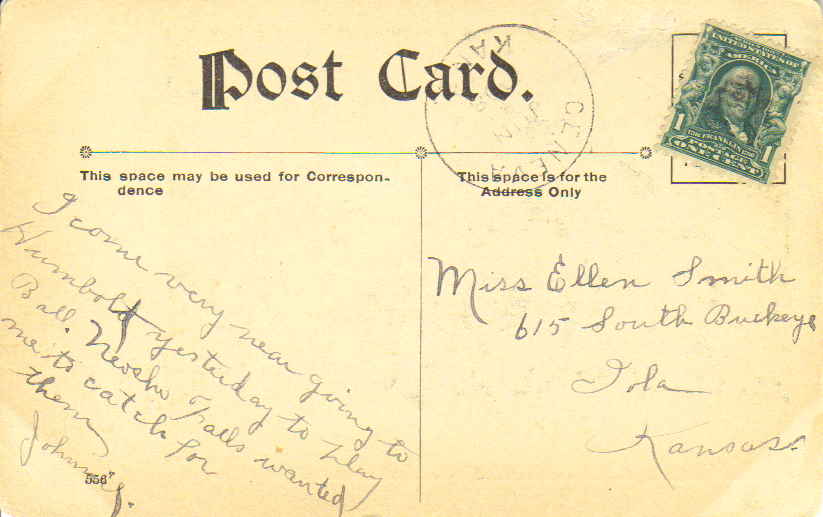 Post Card.
This space may be used for Correspondence
This space is for the
Address Only
GENEVA
KAN
JUN
UNITED STATES OF
AMERICA
FRANKLIN
POSTAGE
1 ONE CENT 1
I come very near going to
Humboldt yesterday to play
Ball. Neosho Falls wanted
me to catch for
them
Johnnie
556
Miss Ellen Smith
615 South Buckeye
Iola
Kansas.